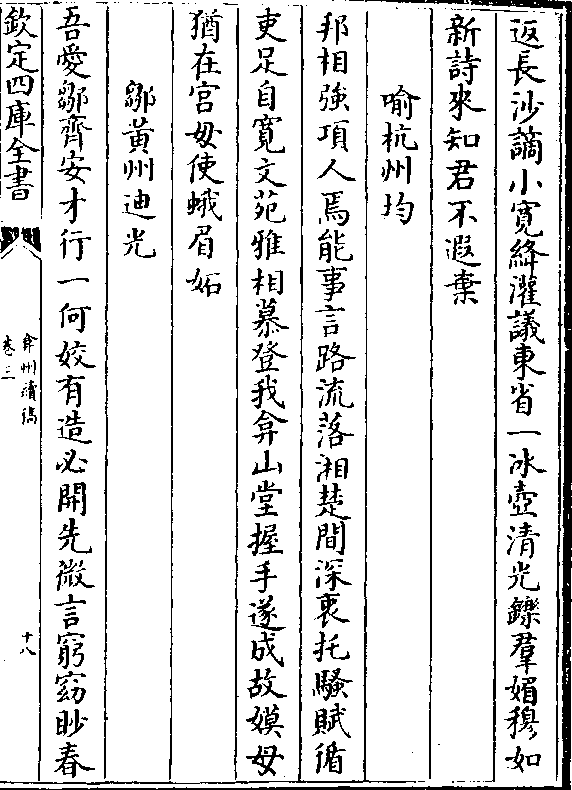 返長沙謫小寛絳灌議東省一冰壺清光鑠羣媚穆如
新詩來知君不遐棄
喻杭州均
邦相強項人焉能事言路流落湘楚間深衷托騷賦循
吏足自寛文苑雅相慕登我弇山堂握手遂成故嫫母
猶在宮毋使蛾眉妬
鄒黄州迪光
吾愛鄒齊安才行一何姣有造必開先微言窮窈眇春
欽定四庫全書
弇州續稿
卷三
十八